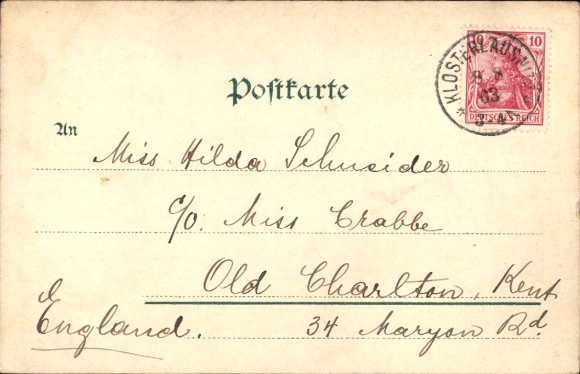 10 10
KLOSTERLAUSNITZ
03
DEUTSCHES REICH
Postkarte
An
Miss Hilda Schneider
c/o. Miss Crabbe
Old Charlton, Kent
England. 34 Maryon Rd.